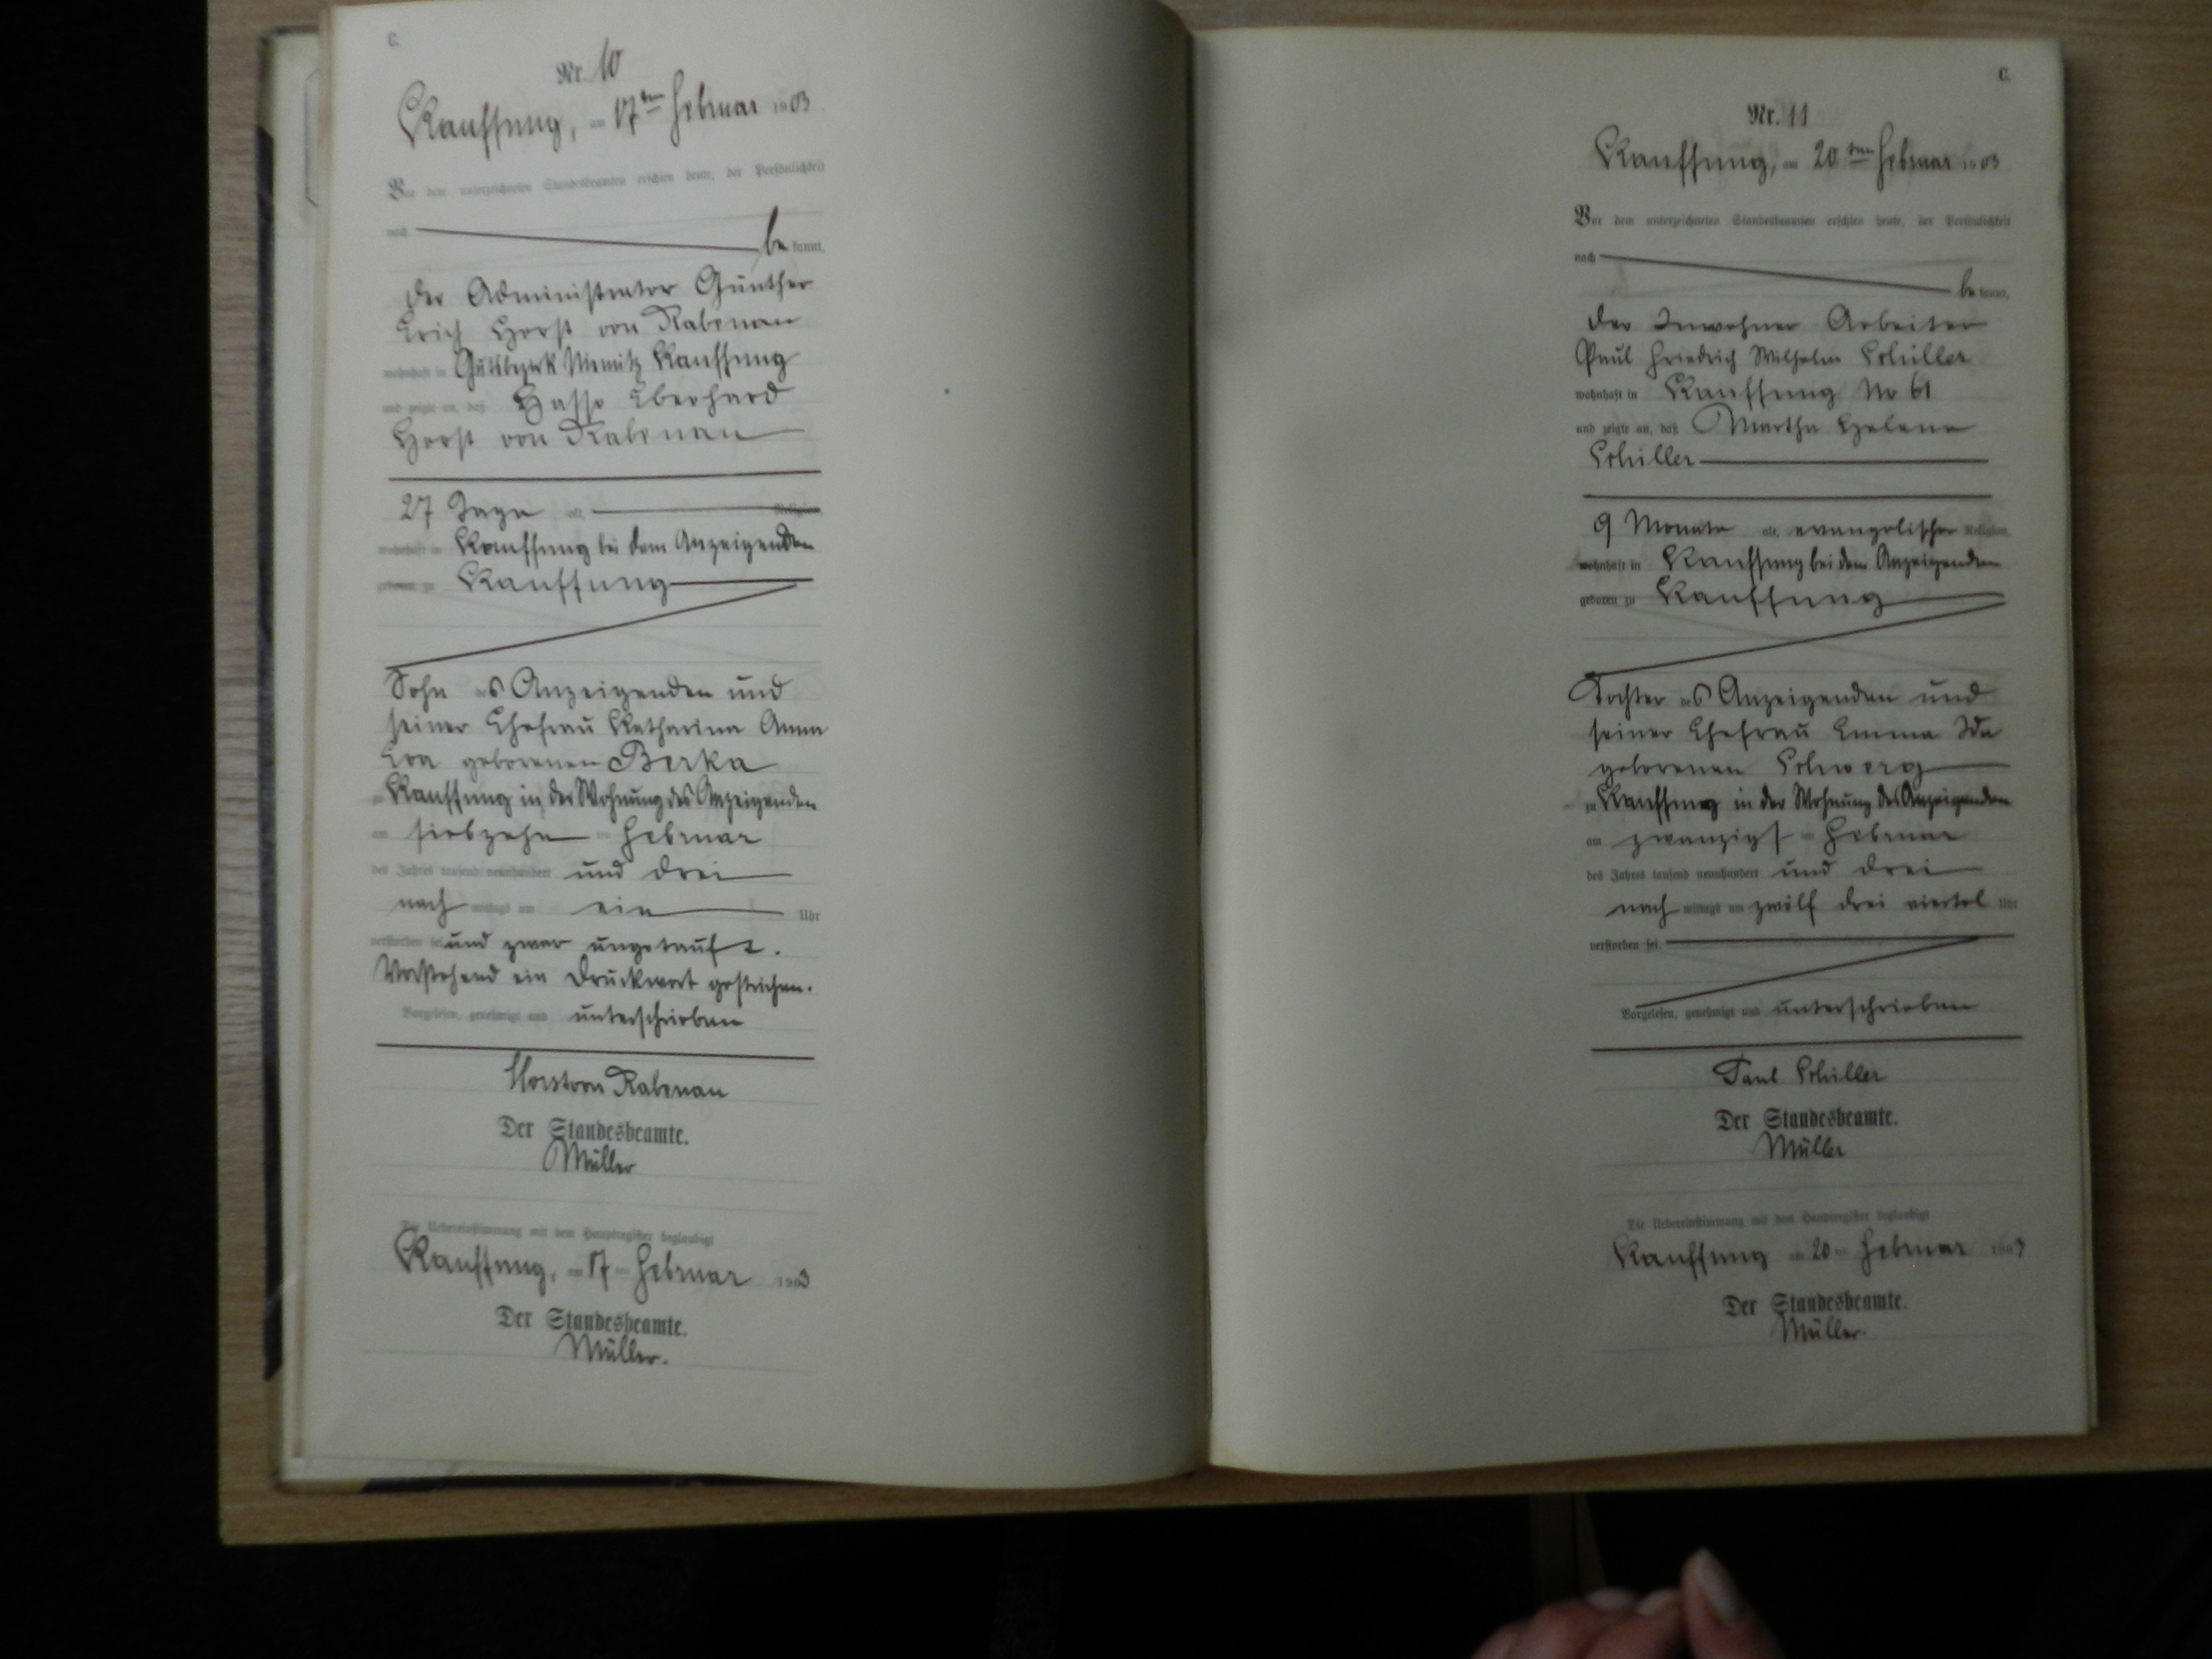 C.
Nr. 10
Kauffung, am 17ten Februar 1903
Vor dem unterzeichneten Standesbeamten erschien heute, der Persönlichkeit
nach be kannt,
der Administrator Günther
Erich Horst von Rabenau
wohnhaft in Gutsbezirk Niemitz Kauffung
und zeigte an, daß Hasso Eberhard
Horst von Rabenau
27 Tage alt, Religion,
wohnhaft in Kauffung bei dem Anzeigenden
geboren zu Kauffung
Sohn des Anzeigenden und
seiner Ehefrau Katharina Anna
Eva geborenen Berka
zu Kauffung in der Wohnung des Anzeigenden
am siebzehn ten Februar
des Jahres tausend neunhundert und drei
nach mittags um ein Uhr
verstorben sei und zwar ungetauft.
Vorstehend ein Druckwort gestrichen.
Vorgelesen, genehmigt und unterschrieben
Horst von Rabenau
Der Standesbeamte.
Müller
Die Uebereinstimmung mit dem Hauptregister beglaubigt
Kauffung, am 17 ten Februar 1903
Der Standesbeamte.
Müller.
C.
Nr. 11
Kauffung, am 20ten Februar 1903
Vor dem unterzeichneten Standesbeamten erschien heute, der Persönlichkeit
nach be kannt,
der Inwohner Arbeiter
Paul Friedrich Wilhelm Schiller
wohnhaft in Kauffung No 61
und zeigte an, daß Martha Helene
Schiller
9 Monate alt, evangelischer Religion,
wohnhaft in Kauffung bei dem Anzeigenden
geboren zu Kauffung
Tochter des Anzeigenden und
seiner Ehefrau Emma Ida
geborenen
zu Kauffung in der Wohnung des Anzeigenden
am zwanzigs ten Februar
des Jahres tausend neunhundert und drei
nach mittags um zwölf drei viertel Uhr
verstorben sei.
Vorgelesen, genehmigt und unterschrieben
Paul Schiller
Der Standesbeamte.
Müller
Die Uebereinstimmung mit dem Hauptregister beglaubigt
Kauffung am 20 ten Februar 1903
Der Standesbeamte.
Müller.